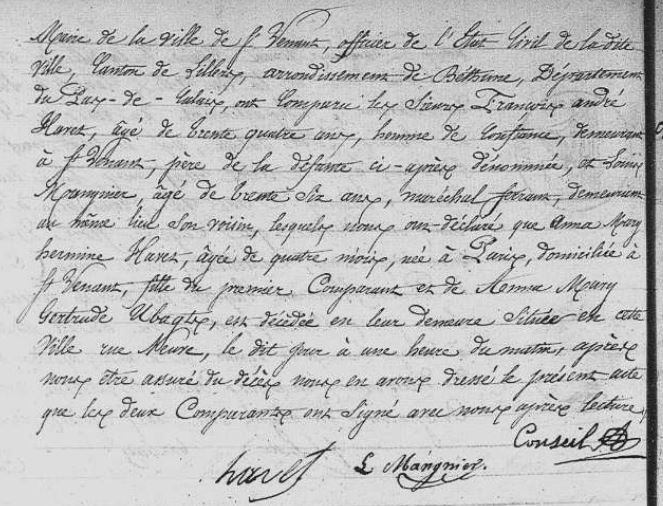 Maire de la ville de St Venant, officier de l'Etat Civil de la dite
ville, Canton de Lillers, arrondissement de Béthune, Département
du Pas-de-Calais, ont Comparu les Sieurs François andré
Haret, âgé de trente quatre ans, homme de Confiance, demeurant
à St Venant, père de la défunte ci-après dénommée, et Louis
Mangnier, âgé de trente Six ans, maréchal ferrant, demeurant
au même lieu Son voisin, lesquels nous ont déclaré que anna Mary
hermine Haret, âgée de quatre mois, née à Paris, domiciliée à
St Venant, fille du premier Comparant et de Anna Mary
Gertrude Ubaghs, est décédée en leur demeure Située en cette
Ville rue Neuve, le dit jour à une heure du matin, après
nous être assuré du décès nous en avons dressé le présent acte
que les deux Comparants ont Signé avec nous après lecture,
Conseil
haret L Mangnier.